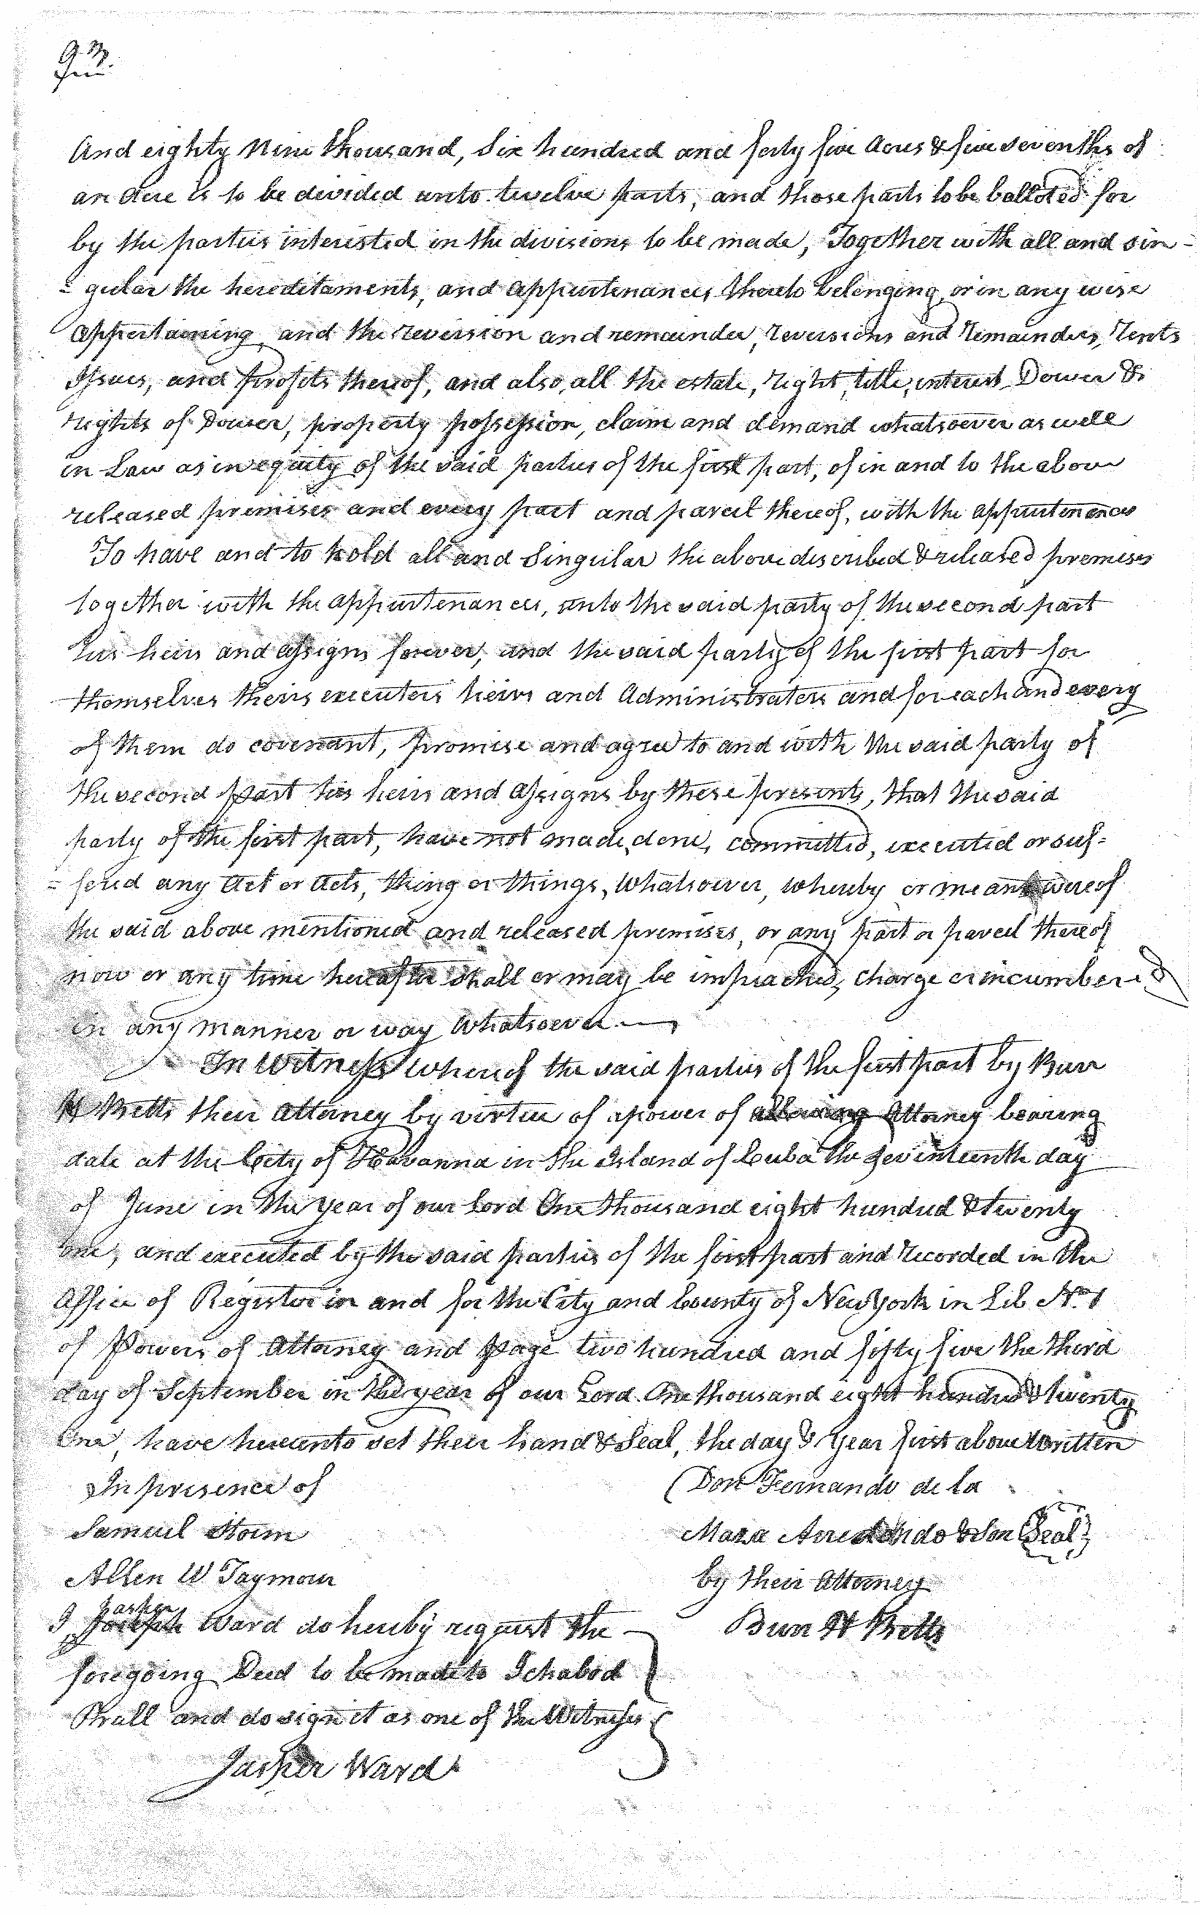 And eighty Nine thousand, Six hundred and forty five Acres & five sevenths of
an Acre is to be divided unto twelve parts, and those parts to be balloted for
by the parties interested in the divisions to be made, Together with all and sin-
-gular the hereditaments, and appurtenances thereto belonging, or in any wise
Appertaining, and the reversion and remainder, reversions and remainders, Rents
Issues, and profits thereof, and also, all the estate, right, title, interest, Dower &
rights of Dower, property possession, claim and demand whatsoever as well
in Law as in equity of the said parties of the first part, of in and to the above
released premises and every part and parcel thereof, with the appurtenances
To have and to hold all and Singular the above discribed & released premises
together with the appurtenances, unto the said party of the second part
his heirs and assigns forever, and the said party of the first part for
themselves theirs executers heirs and Administraters and for each and every
of them do covenant, promise and agree to and with the said party of
the second part his heirs and assigns by these presents, that the said
party of the first part, have not made, done, committed, executed or suf=
=fered any Act or Acts, thing or things, whatsoever, whereby or means wereof
the said above mentioned and released premises, or any part or parcel thereof
now or any time hereafter shall or may be impeached, charge or incumbered
in any manner or way whatsoever
In Witness whereof the said parties of the first part by Burr
H Betts their Attorney by virtue of a power of Attorney bearing
date at the City of Havanna in the Island of Cuba the Seventeenth day
of June in the year of our Lord One thousand eight hundred & twenty
one, and executed by the said parties of the first part and recorded in the
Office of Register in and for the City and County of New York in Lib No 1
of Powers of Attorney and page two hundred and fifty five the third
day of September in the year of our Lord One thousand eight hundred & twenty
One, have hereunto set their hand & Seal, the day & Year first above written
In presence of
(Don Fernando de la
Samuel Storm
Maza Arredondo & Son Seal
Allen W
by their Attorney
Jasper
I Joseph Ward do hereby request the
Burr H Betts
foregoing Deed to be made to Ichabod
Prall and do sign it as one of the Witnesses
Jasper Ward